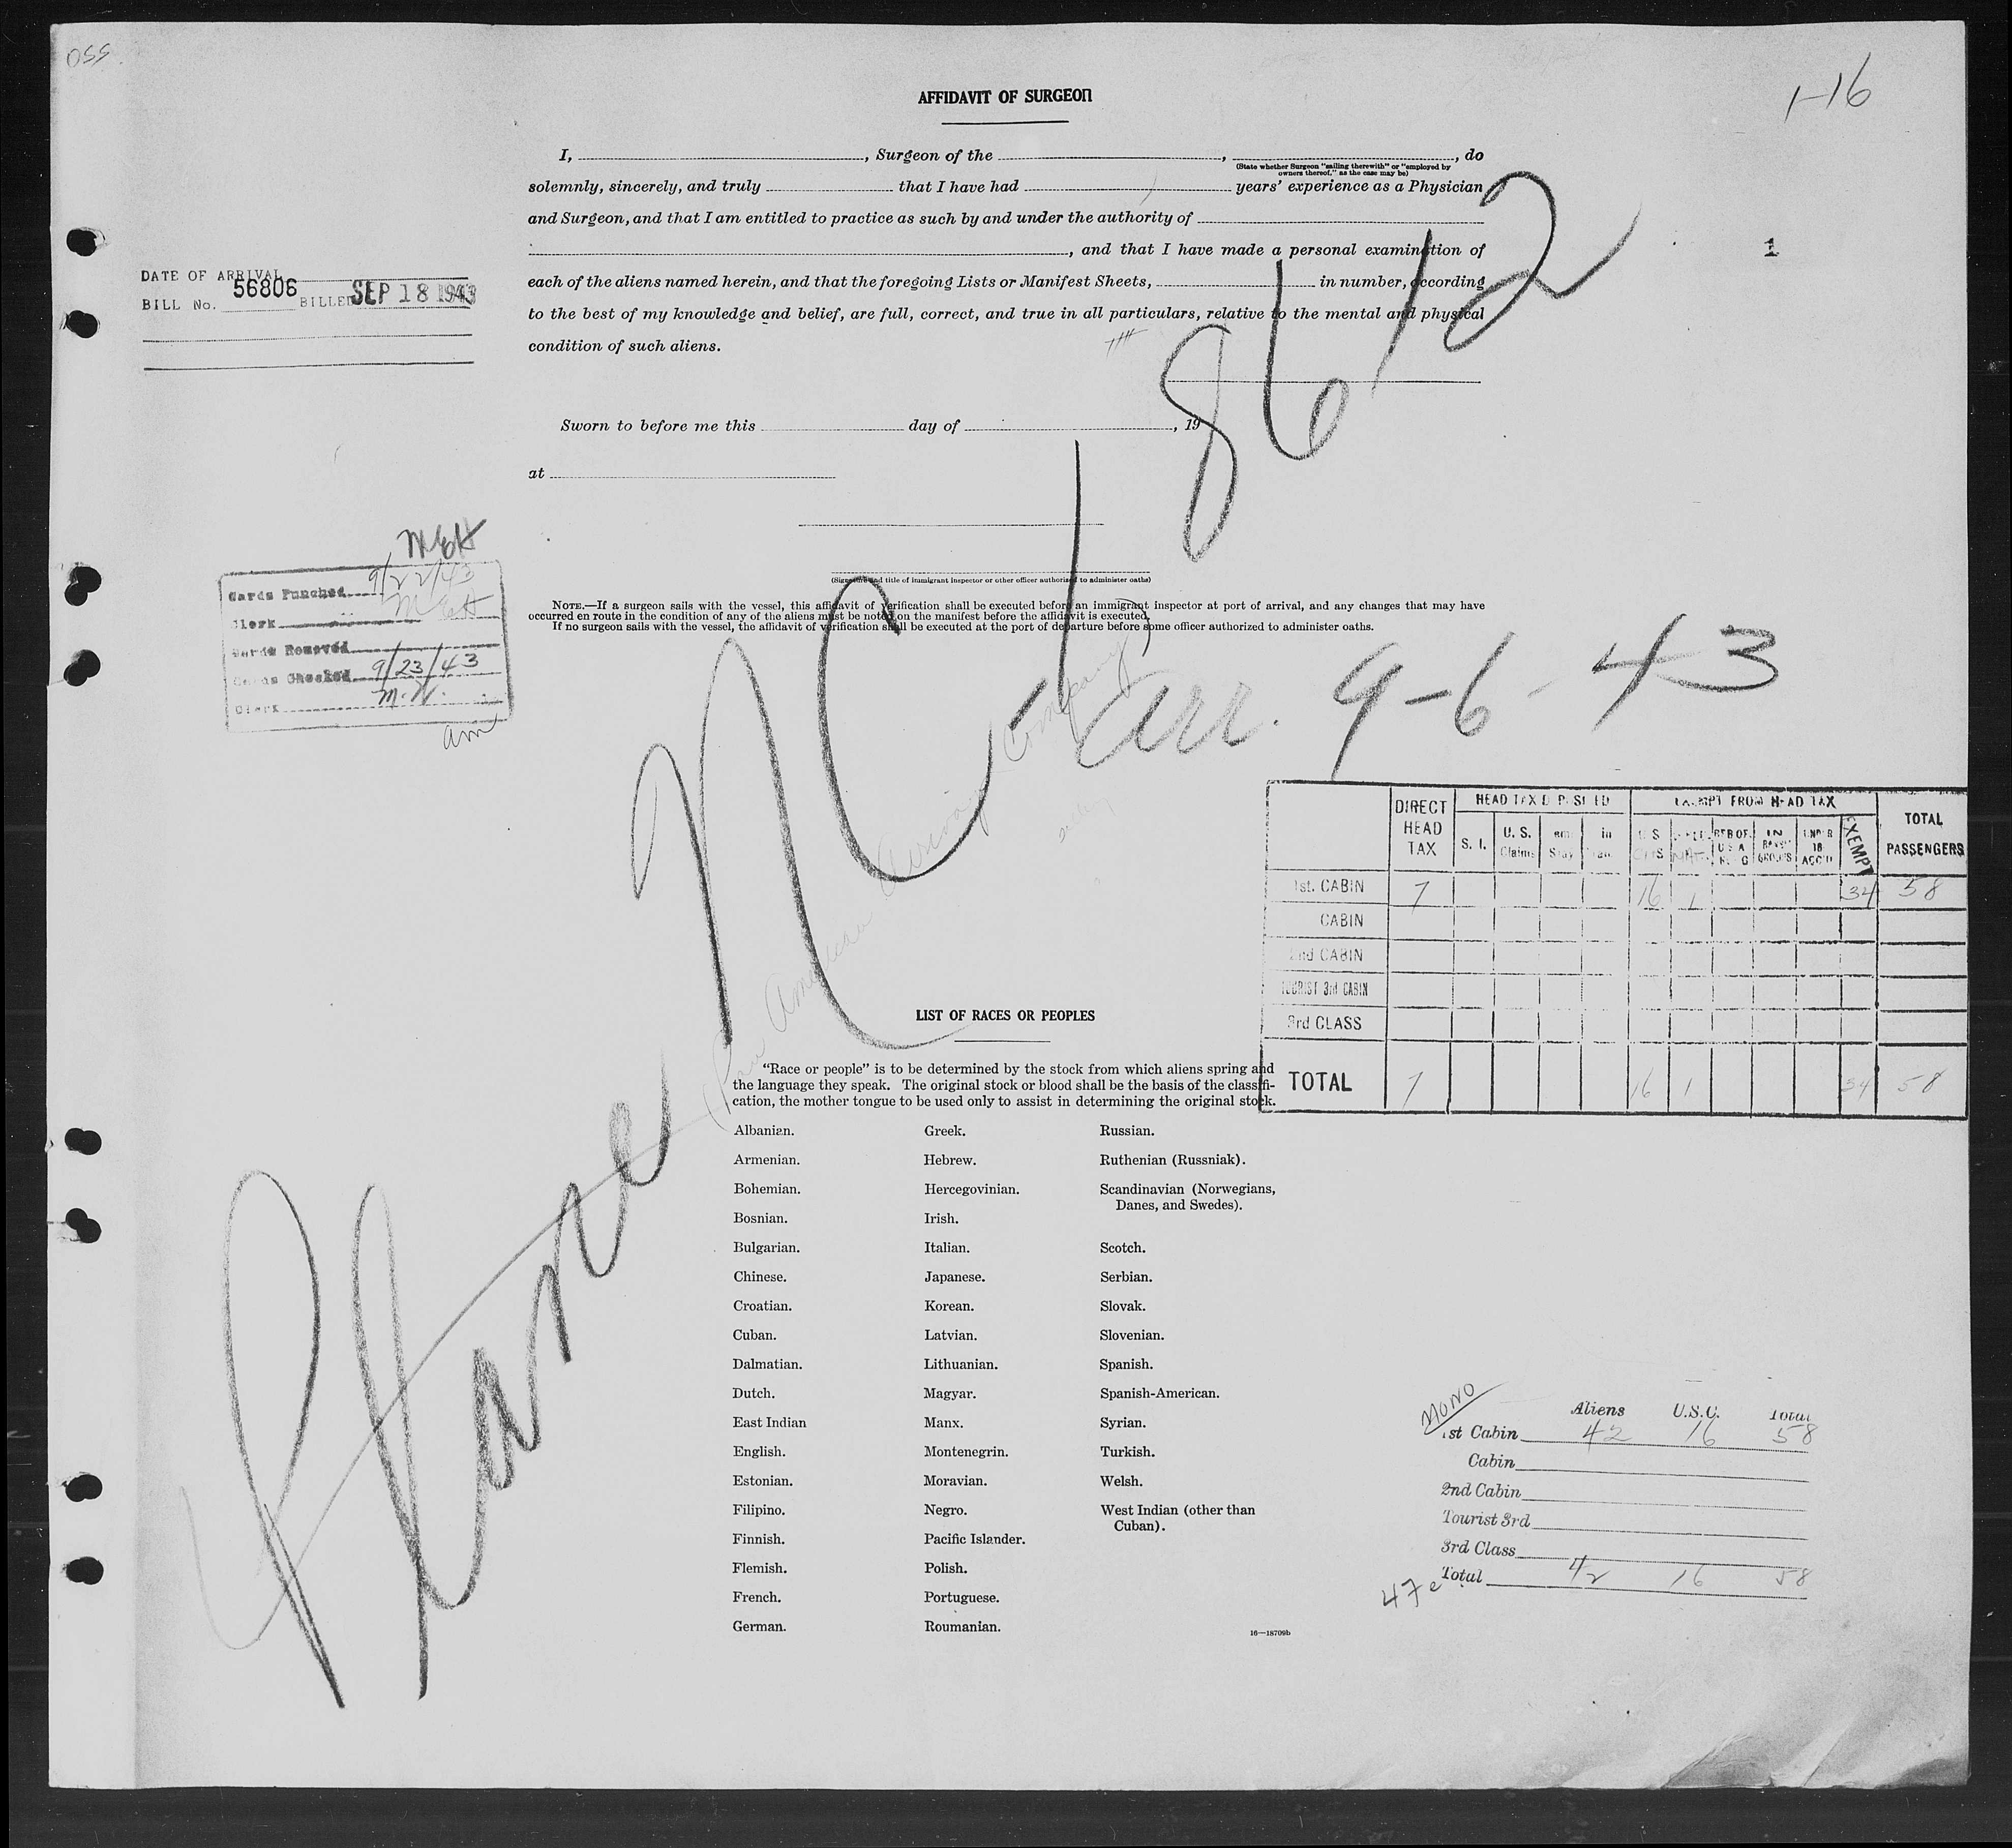 OSS
1-16
AFFIDAVIT OF SURGEON
I, , Surgeon of the , , do
(State whether Surgeon "sailing therewith" or "employed by
owners thereof," as the case may be)
solemnly, sincerely, and truly that I have had years' experience as a Physician
and Surgeon, and that I am entitled to practice as such by and under the authority of
, and that I have made a personal examination of
each of the aliens named herein, and that the foregoing Lists or Manifest Sheets, in number, according
to the best of my knowledge and belief, are full, correct, and true in all particulars, relative to the mental and physical
condition of such aliens.
1
DATE OF ARRIVAL
BILL No. 56806 BILLED SEP 18 1943
Sworn to before me this day of , 19
at
(Signature and title of immigrant inspector or other officer authorized to administer oaths)
NOTE.—If a surgeon sails with the vessel, this affidavit of verification shall be executed before an immigrant inspector at port of arrival, and any changes that may have
occurred en route in the condition of any of the aliens must be noted on the manifest before the affidavit is executed.
If no surgeon sails with the vessel, the affidavit of verification shall be executed at the port of departure before some officer authorized to administer oaths.
MEH
Cards Punched 9/22/43
Clerk MEH
Cards Removed
Cards Checked 9/23/43
Clerk M.W.
am
Plane NC-18612
(Pan American Airways Company)
arr. 9-6-43
DIRECT HEAD TAX
HEAD TAX DEPOSITED
EXEMPT FROM HEAD TAX
TOTAL PASSENGERS
S. I. U. S. Claims
IN
UNDER 16 ACC'D
EXEMPT
1st. CABIN 7 16 1 34 58
CABIN
2nd CABIN
TOURIST 3rd CABIN
3rd CLASS
TOTAL 7 16 1 34 58
LIST OF RACES OR PEOPLES
"Race or people" is to be determined by the stock from which aliens spring and
the language they speak. The original stock or blood shall be the basis of the classifi-
cation, the mother tongue to be used only to assist in determining the original stock.
Albanian. Greek. Russian.
Armenian. Hebrew. Ruthenian (Russniak).
Bohemian. Hercegovinian. Scandinavian (Norwegians,
Danes, and Swedes).
Bosnian. Irish.
Bulgarian. Italian. Scotch.
Chinese. Japanese. Serbian.
Croatian. Korean. Slovak.
Cuban. Latvian. Slovenian.
Dalmatian. Lithuanian. Spanish.
Dutch. Magyar. Spanish-American.
East Indian Manx. Syrian.
English. Montenegrin. Turkish.
Estonian. Moravian. Welsh.
Filipino. Negro. West Indian (other than
Cuban).
Finnish. Pacific Islander.
Flemish. Polish.
French. Portuguese.
German. Roumanian.
16—18709b
MONO
Aliens U.S.C. Total
1st Cabin 42 16 58
Cabin
2nd Cabin
Tourist 3rd
3rd Class
Total 42 16 58
47e